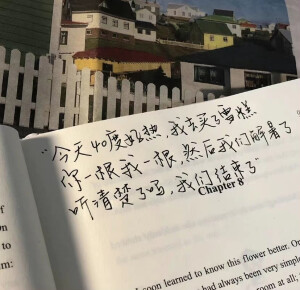 “今天40度好热,我去买了雪糕
你一根我一根,然后我们解暑了
听清楚了吗,我们结束了”
Chapter 8
of
to
soon learned to know this flower better. On
had always been very simple
room at all;